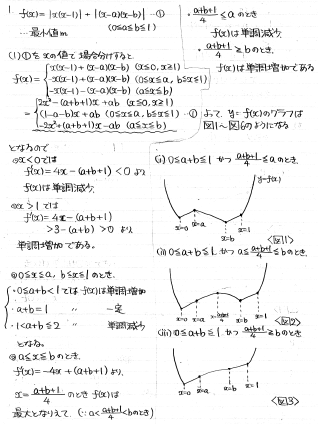 1. f(x)=|x(x-1)|+|(x-a)(x-b)| …①
(0≤a≤b≤1)
…最小値m
(1)①をxの値で場合分けすると
f(x)={ x(x-1)+(x-a)(x-b) (x≤0, x≥1)
-x(x-1)+(x-a)(x-b) (0≤x≤a, b≤x≤1)
-x(x-1)-(x-a)(x-b) (a≤x≤b)
={ 2x²-(a+b+1)x+ab (x≤0, x≥1)
(1-a-b)x+ab (0≤x≤a, b≤x≤1)
-2x²+(a+b+1)x-ab (a≤x≤b)
となるので
◎x<0では
f'(x)=4x-(a+b+1)<0より
f(x)は単調減少
◎x>1では
f'(x)=4x-(a+b+1)
>3-(a+b)>0より
単調増加である。
◎0≤x≤a, b≤x≤1のとき.
・0≤a+b<1ではf(x)は単調増加
・a+b=1 〃 一定
・1<a+b≤2 〃 単調減少
となる。
◎a≤x≤bのとき.
f'(x)=-4x+(a+b+1)より.
x=(a+b+1)/4のときf(x)は
最大となりえて.(∵a<(a+b+1)/4<bのとき)
・(a+b+1)/4≤aのとき
f(x)は単調減少.
・(a+b+1)/4≥bのとき.
f(x)は単調増加である
よって y=f(x)のグラフは
図1〜図6のようになる
(i)0≤a+b≤1 かつ (a+b+1)/4≤aのとき.
y=f(x)
x=0 x=a x=b x=1
<図1>
(ii)0≤a+b≤1 かつ a≤(a+b+1)/4≤bのとき.
x=0 x=a x=(a+b+1)/4 x=b x=1
<図2>
(iii)0≤a+b≤1 かつ (a+b+1)/4≥bのとき
x=0 x=a x=b x=1
<図3>